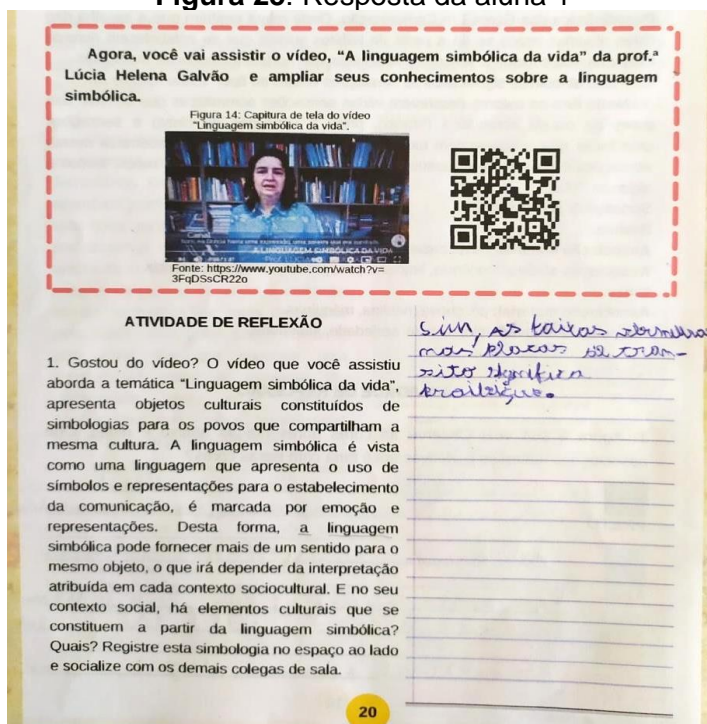 Figura 25: Resposta da aluna 1
Agora, você vai assistir o vídeo, “A linguagem simbólica da vida” da prof.ª
Lúcia Helena Galvão e ampliar seus conhecimentos sobre a linguagem
simbólica.
Figura 14: Capitura de tela do vídeo
“Linguagem simbólica da vida”.
A LINGUAGEM SIMBÓLICA DA VIDA
Fonte: https://www.youtube.com/watch?v=
3FqDSsCR22o
ATIVIDADE DE REFLEXÃO
1. Gostou do vídeo? O vídeo que você assistiu
aborda a temática “Linguagem simbólica da vida”,
apresenta objetos culturais constituídos de
simbologias para os povos que compartilham a
mesma cultura. A linguagem simbólica é vista
como uma linguagem que apresenta o uso de
símbolos e representações para o estabelecimento
da comunicação, é marcada por emoção e
representações. Desta forma, a linguagem
simbólica pode fornecer mais de um sentido para o
mesmo objeto, o que irá depender da interpretação
atribuída em cada contexto sociocultural. E no seu
contexto social, há elementos culturais que se
constituem a partir da linguagem simbólica?
Quais? Registre esta simbologia no espaço ao lado
e socialize com os demais colegas de sala.
sim, as faixas vermelha
nas placas de tran-
sito significa
20